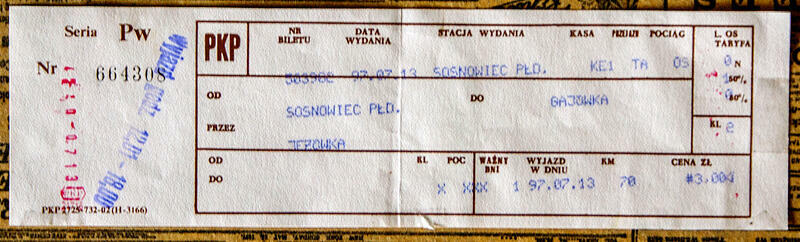 Seria Pw
Nr 664308
Wyjazd godz. 12,01 - 18,00
PKP 2725-732-02 (H-3166)
PKP
NR BILETU DATA WYDANIA STACJA WYDANIA KASA POCIĄG L. OS TARYFA
503902 97.07.13 SOSNOWIEC PŁD. KE1 TA OS 0 N
1 50%
0
OD SOSNOWIEC PŁD. DO GAJÓWKA
PRZEZ JEZOWKA
KL 2
OD
DO
KL POC WAŻNY DNI WYJAZD W DNIU KM CENA ZŁ
X XXX 1 97.07.13 70 #3,00#